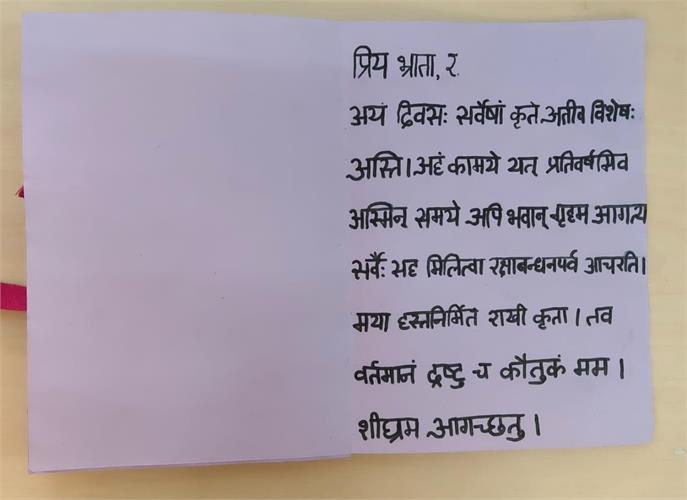 प्रिय भ्राता, र.
अयं दिवसः सर्वेषां कृते अतीव विशेषः
अस्ति। अहं कामये यत् प्रतिवर्षमिव
अस्मिन् समये अपि भवान् गृहम आगत्य
सर्वैः सह मिलित्वा रक्षाबन्धनपर्व आचरति।
मया हस्तनिर्मित राखी कृता। तव
वर्तमानं द्रष्टु च कौतुकं मम।
शीघ्रम आगच्छतु।